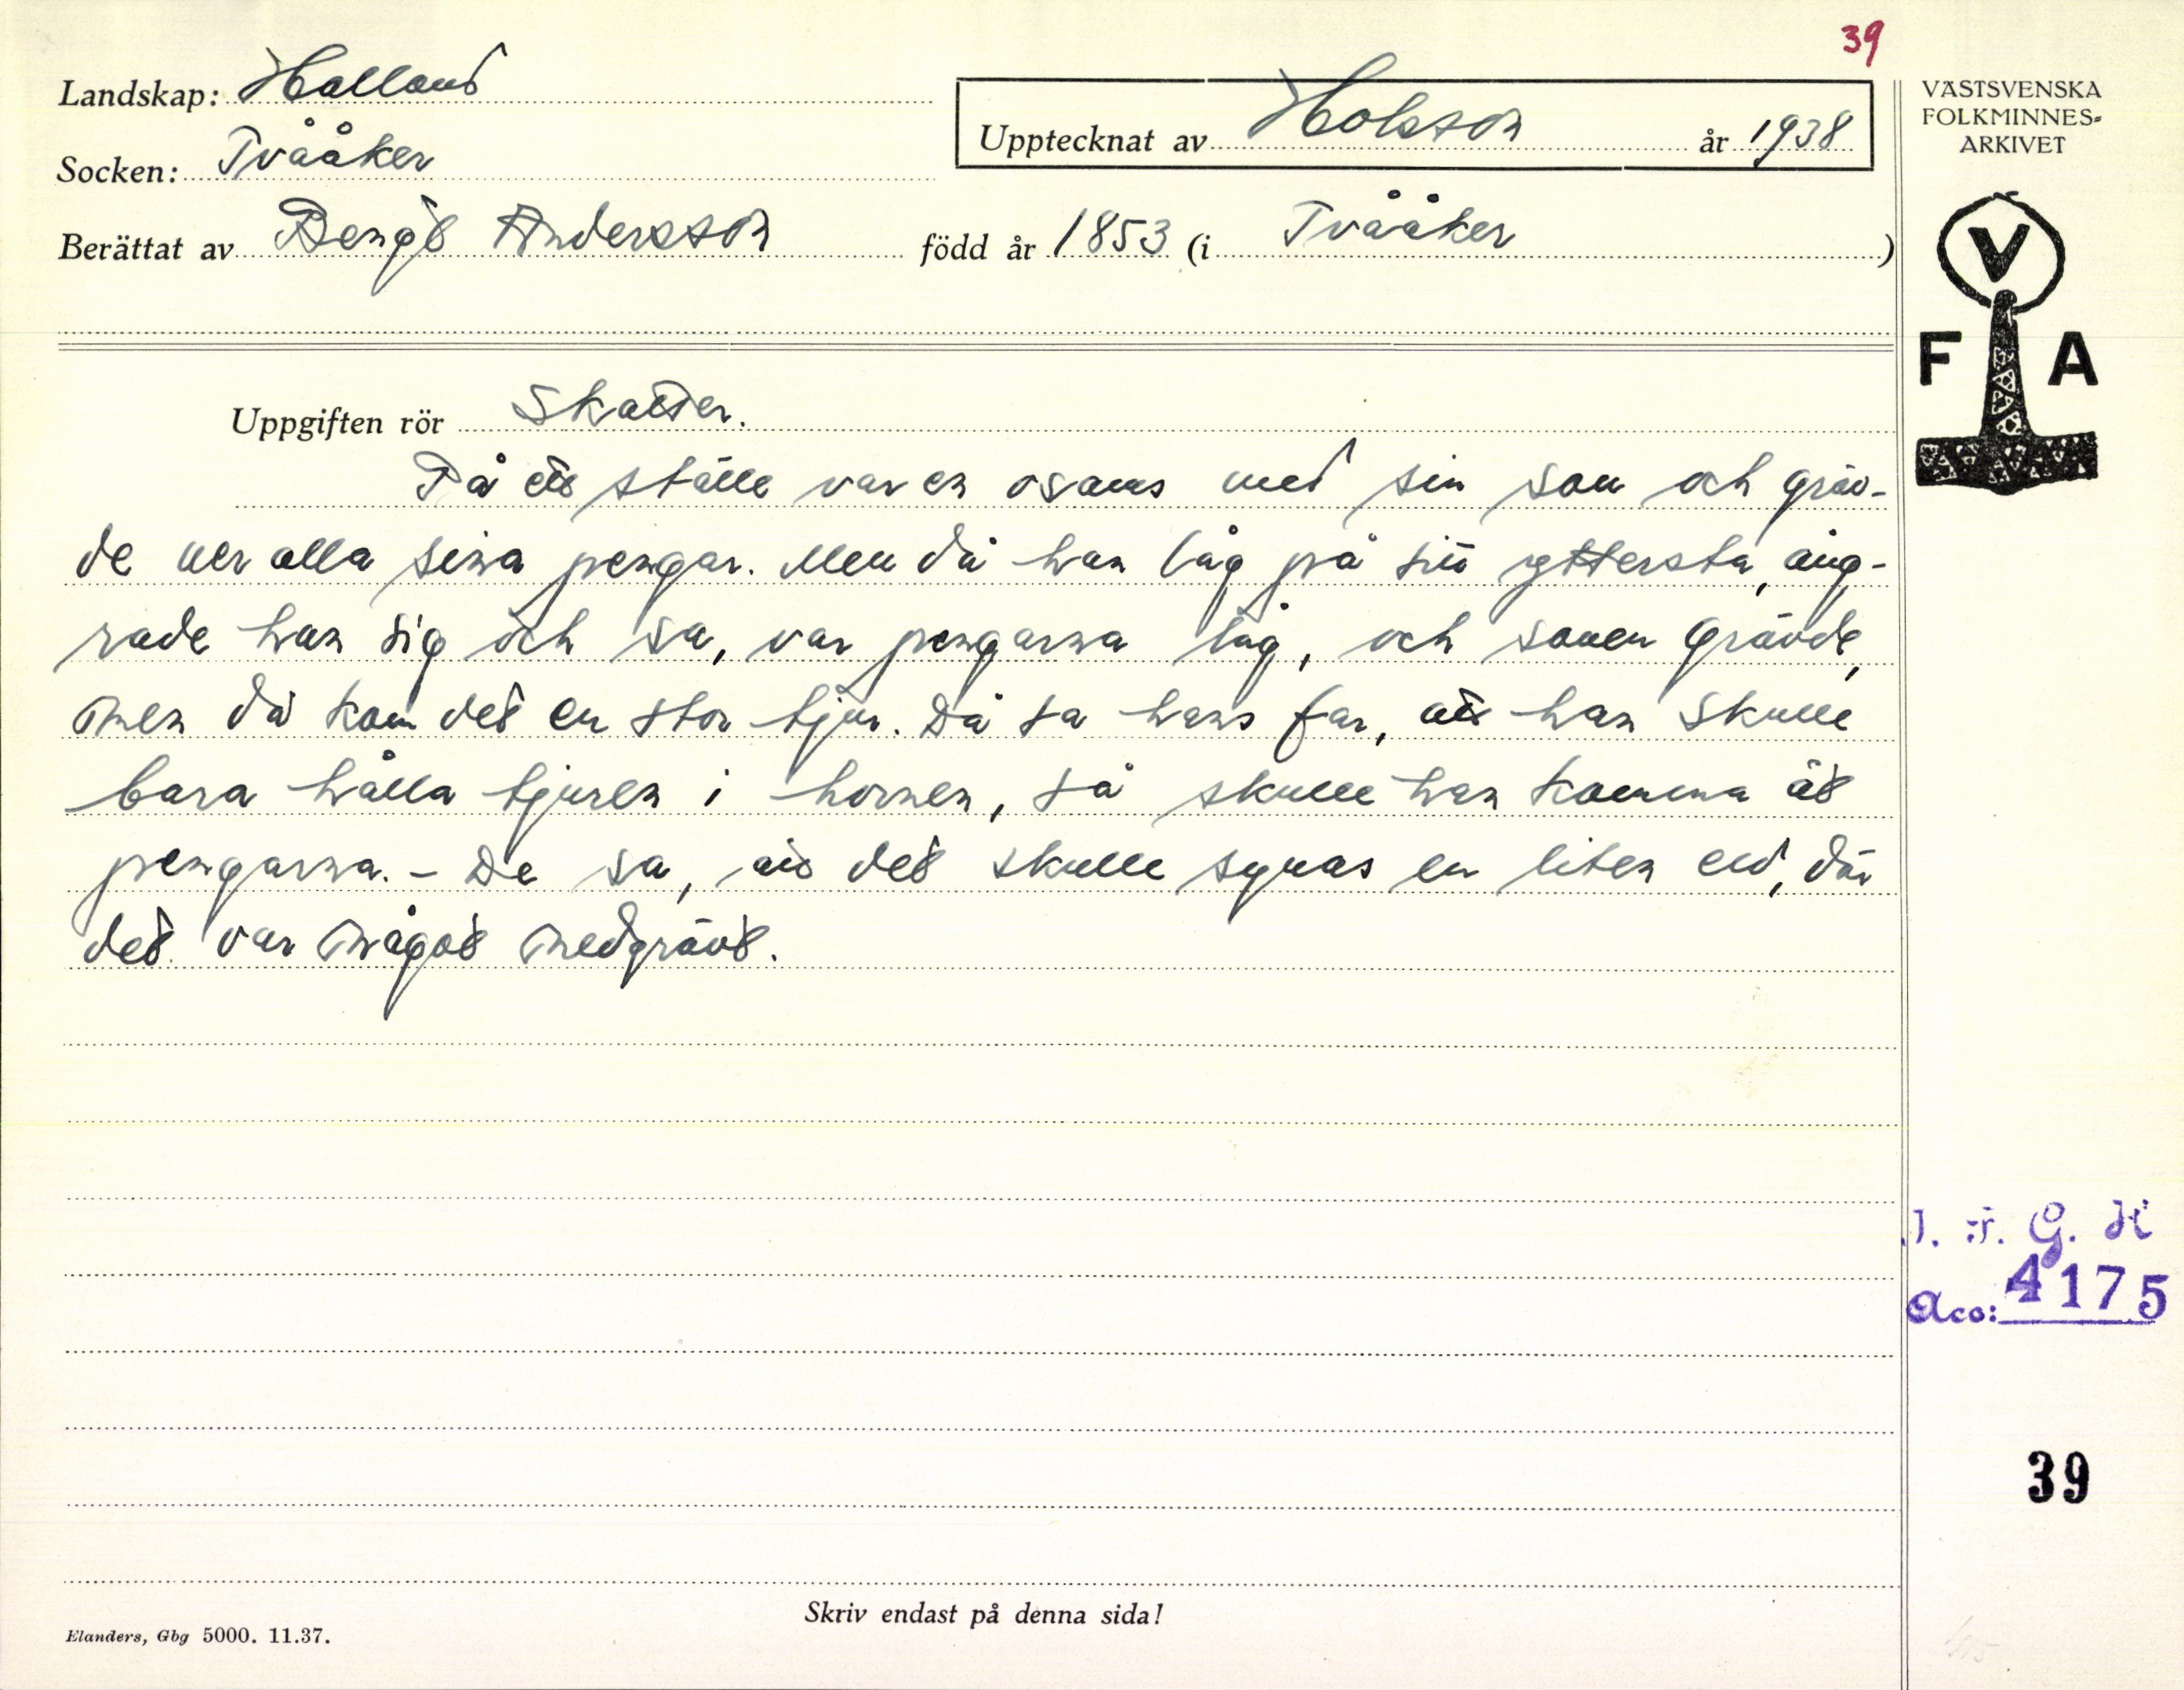 39
Landskap: Halland
Socken: Tvååker
Upptecknat av Holsson år 1938
Berättat av Bengt Andersson född år 1853 (i Tvååker )
VÄSTSVENSKA
FOLKMINNES-
ARKIVET
V
F A
Uppgiften rör Skatter.
På ett ställe var en osams med sin son och gräv-
de ner alla sina pengar. Men då han låg på sitt yttersta, ång-
rade han sig och sa, var pengarna låg, och sonen grävde,
men då kom det en stor tjur. Då sa hans far, att han skulle
bara hålla tjuren i hornen, så skulle han komma åt
pengarna. - De sa, att det skulle synas en liten eld, där
det var något nedgrävt.
I. F. G. H
Acc: 4175
39
Skriv endast på denna sida!
Elanders, Gbg 5000. 11.37.